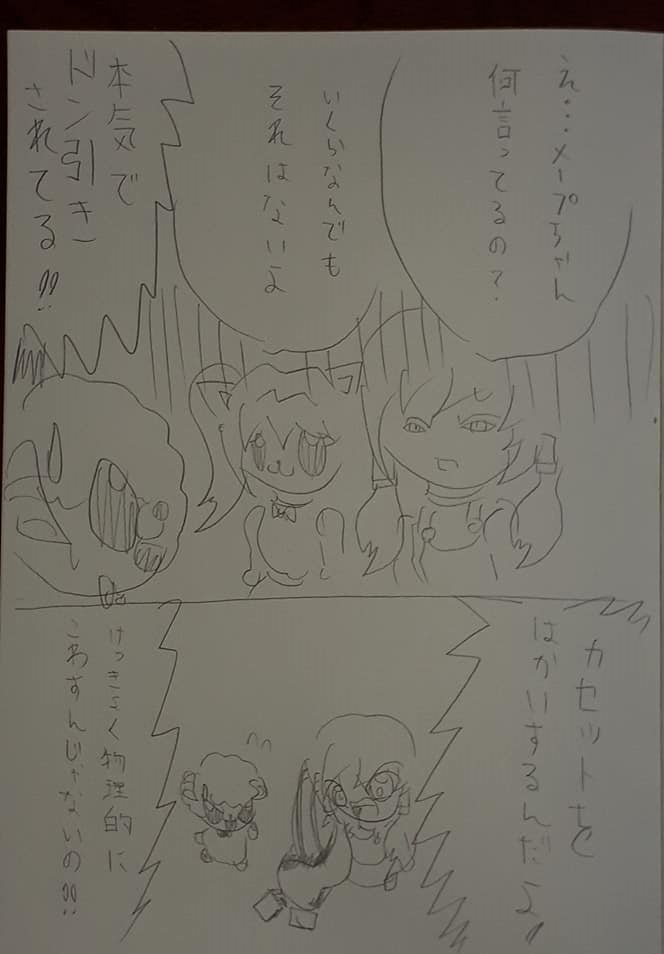 え…メープちゃん
何言ってるの?
いくらなんでも
それはないよ
本気で
ドン引き
されてる!!
カセットを
はかいするんだよ!!
けっきょく物理的に
こわすんじゃないの!?